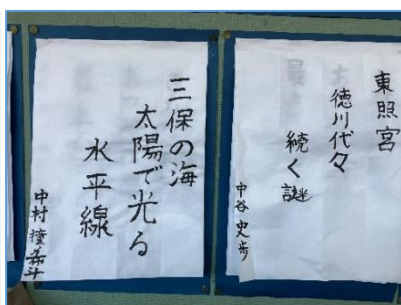 東照宮
徳川代々
続く謎
中谷史歩
三保の海
太陽で光る
水平線
中村